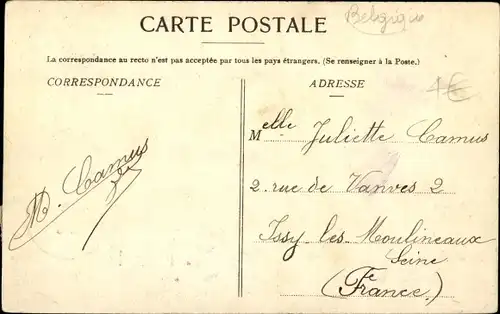 CARTE POSTALE
Belgique
La correspondance au recto n'est pas acceptée par tous les pays étrangers. (Se renseigner à la Poste.)
CORRESPONDANCE
ADRESSE
1€
M. Camus
Melle Juliette Camus
2. rue de Vanves 2
Issy les Moulineaux
Seine
(France)